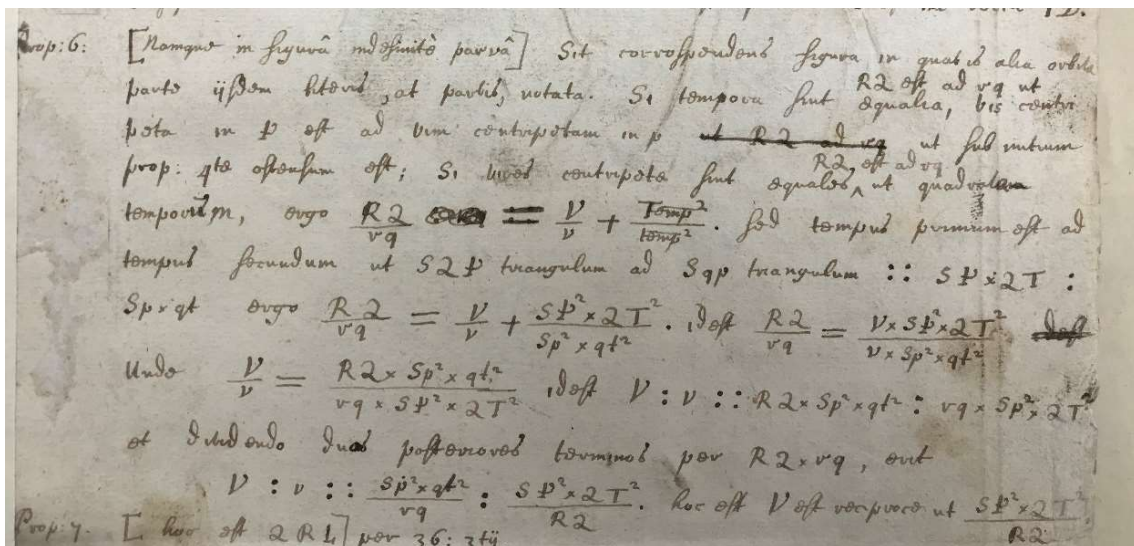 Prop: 6: [Namque in figurâ indefinitè parvâ] Sit correspondens figura in quavis alia orbita
parte ijsdem literis, at parvis, notata. Si tempora sint æqualia, RQ est ad rq ut vis centri
peta in P est ad vim centripetam in p ut RQ ad rq ut sub initium
prop: 4te ostensum est; Si vires centripetæ sint equales, RQ est ad rq ut quadratum
temporum, ergo RQ/rq = V/v + Temp²/temp². sed tempus primum est ad
tempus secundum ut SQP triangulum ad Sqp triangulum :: SP × QT :
Sp × qt ergo RQ/rq = V/v + SP² × QT²/Sp² × qt². idest RQ/rq = V × SP² × QT²/v × Sp² × qt² idest
Unde V/v = RQ × Sp² × qt²/rq × SP² × QT² idest V : v :: RQ × Sp² × qt² : rq × SP² × QT²
et dividendo duos posteriores terminos per RQ × rq, erit
V : v :: Sp² × qt²/rq : SP² × QT²/RQ. hoc est V est reciproce ut SP² × QT²/RQ
Prop: 7. [hoc est QRL] per 36: 3tij